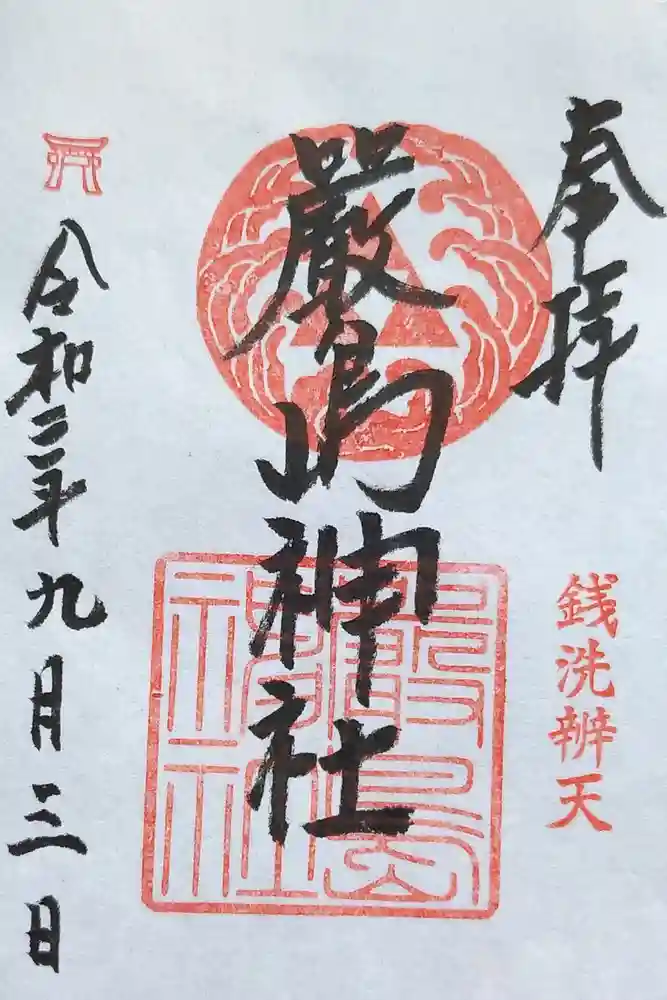 奉拝
銭洗辨天
嚴嶋神社
嚴島神社
令和三年九月三日